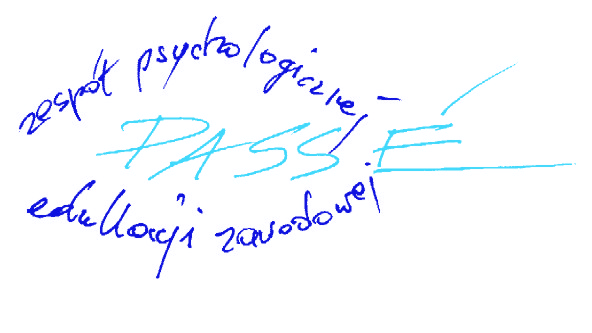 zespół psychologicznej -
PASSÉ
edukacji zawodowej